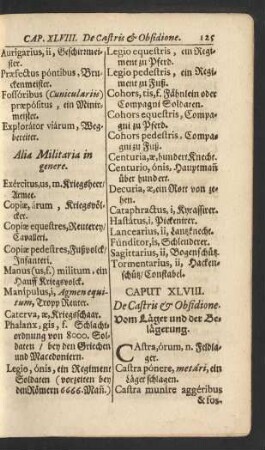 CAP. XLVIII. De Castris & Obsidione. 125
Aurigarius, ii, Geschirrmei-
ster.
Præfectus póntibus, Bru-
ckenmeister.
Fossóribus (Cunicularijs)
præpósitus, ein Minir-
meister.
Explorátor viárum, Weg-
bereiter.
Alia Militaria in
genere.
Exércitus, us, m. Kriegsheer/
Armee.
Copiæ, árum, Kriegsvöl-
cker.
Copiæ equestres, Reuterey/
Cavalleri.
Copiæ pedestres, Fußvolck/
Infanteri.
Manus (us, f.) militum, ein
Hauff Kriegsvolck.
Manípulus, i, Agmen equi-
tum, Tropp Reuter.
Caterva, æ, Kriegsschaar.
Phalanx, gis, f. Schlacht-
ordnung von 8000. Sol-
daten / bey den Griechen
und Macedoniern.
Legio, ónis, ein Regiment
Soldaten (vorzeiten bey
den Römern 6666. Mañ.)
Legio equestris, ein Regi-
ment zu Pferd.
Legio pedestris, ein Regi-
ment zu Fuß.
Cohors, tis, f. Fähnlein oder
Compagni Soldaten.
Cohors equestris, Compa-
gni zu Pferd.
Cohors pedestris, Compa-
gni zu Fuß.
Centuria, æ, hundert Knechte.
Centurio, ónis, Hauptmañ
über hundert.
Decuria, æ, ein Rott von ze-
hen.
Cataphractus, i, Kyrassirer.
Hastátus, i, Pickenirer.
Lancearius, ii, Lantzknecht.
Fúnditor, is, Schlenderer.
Sagittarius, ii, Bogenschütz.
Tormentarius, ii, Hacken-
schütz / Constabel.
CAPUT XLVIII.
De Castris & Obsidione.
Vom Läger und der Be-
lägerung.
CAstra, órum, n. Feldla-
ger.
Castra pónere, metári, ein
Läger schlagen.
Castra munire aggéribus
& fos-